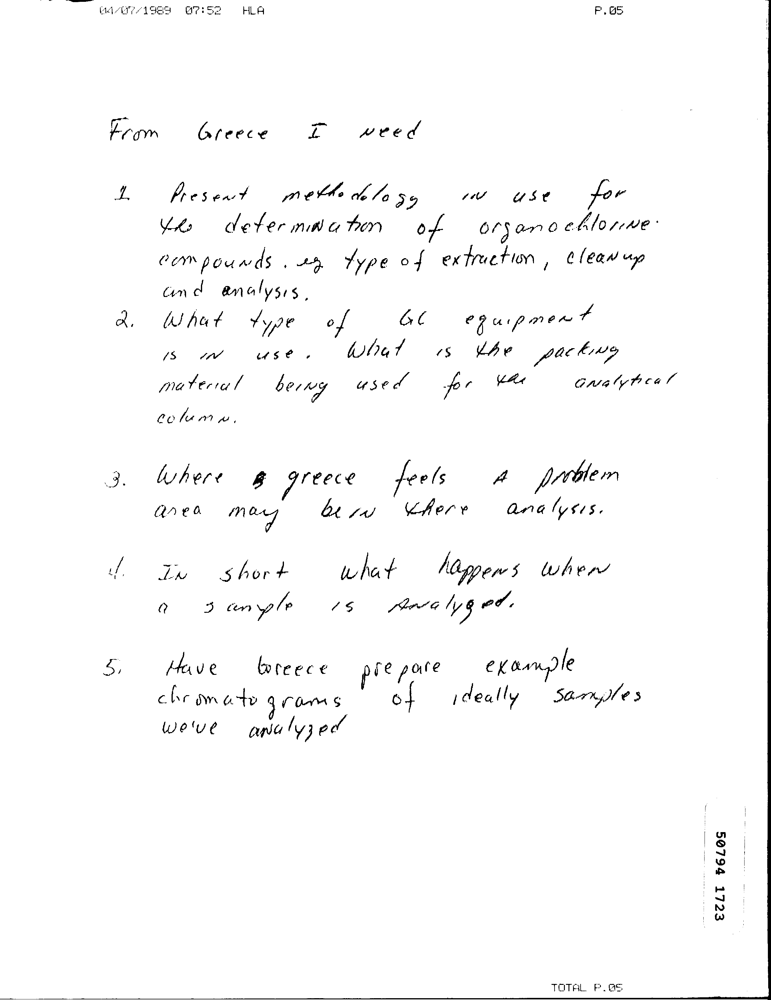 04/07/1989 07:52 HLA P.05
From Greece I need
1 Present methodology in use for
the determination of organochlorine
compounds. eg type of extraction, cleanup
and analysis.
2. What type of GC equipment
is in use. What is the packing
material being used for the analytical
column.
3. Where greece feels a problem
area may be in there analysis.
4. In short what happens when
a sample is analyzed.
5. Have Greece prepare example
chromatograms of ideally samples
we've analyzed
50794 1723
TOTAL P.05